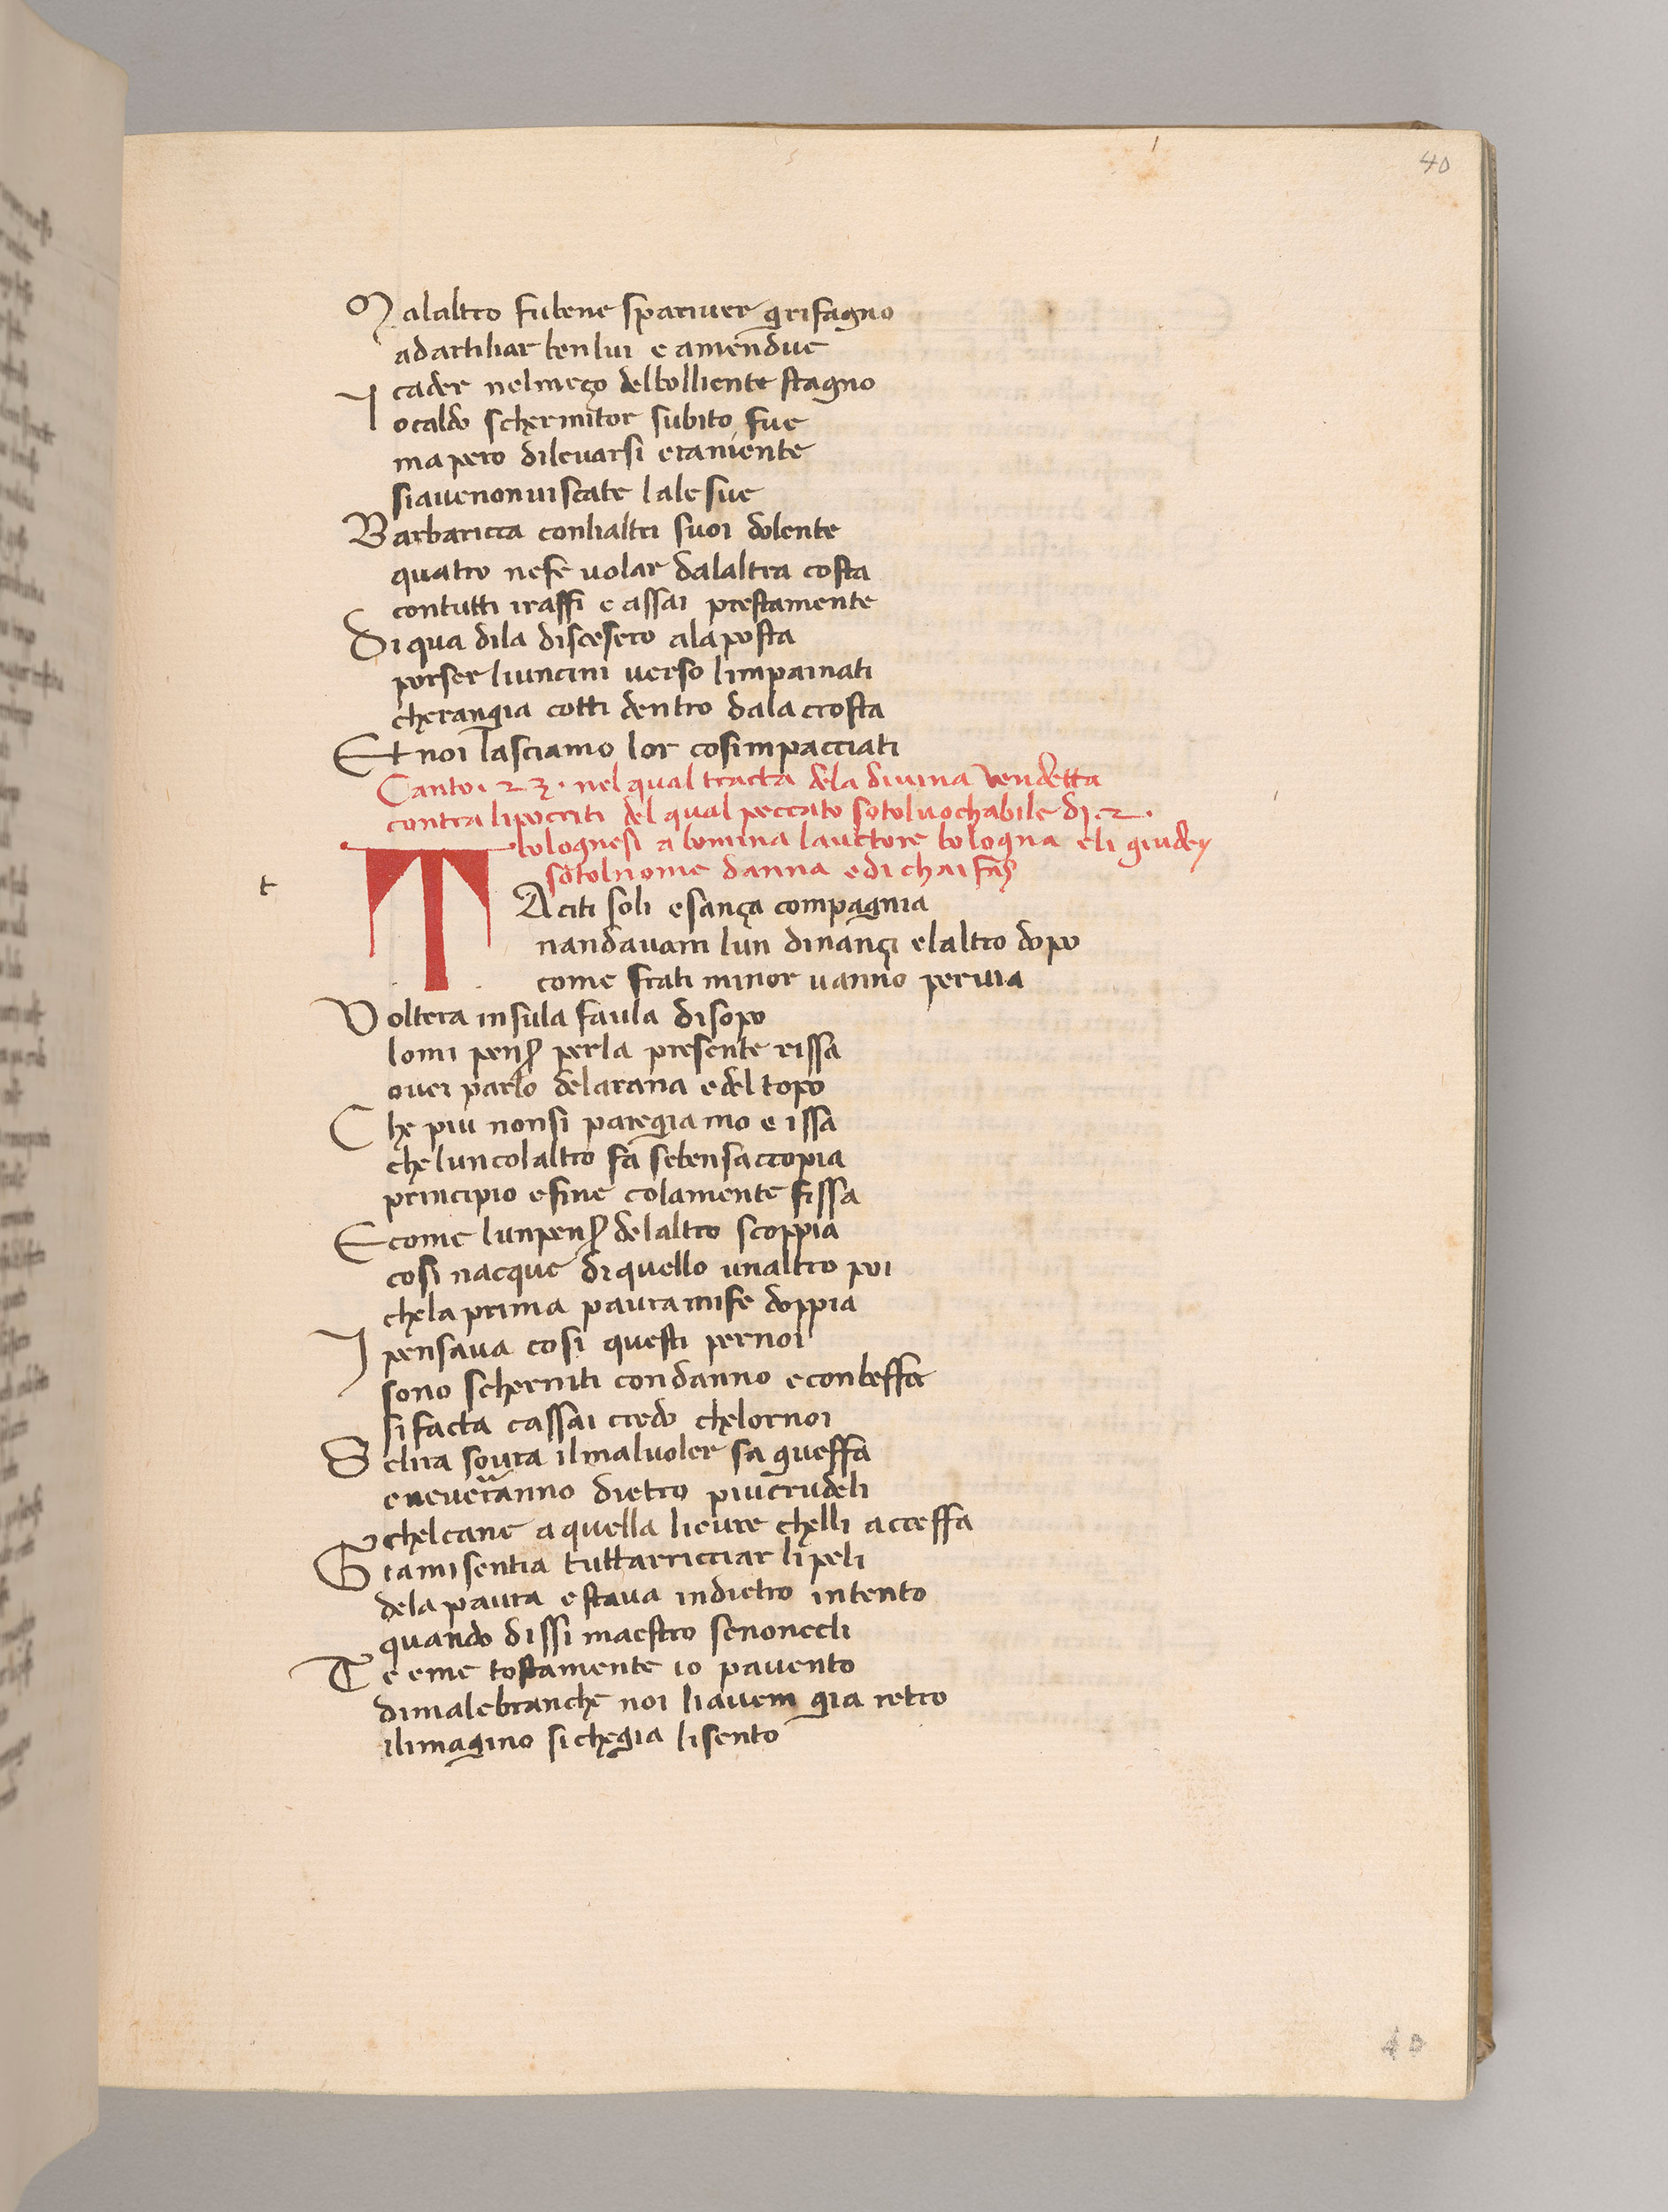 40
Malaltro fubene sparuier grifagno
adartihar benlui e amendue
cader nelmeço delbolliente stagno
Jocaldo schermitor subito fue
mapero dilevarsi eraniente
siavenonuiscate lalesue
Barbaricca conlialtri suoi dolente
quatro nefe volar dalaltra costa
contutti iraffi e assai prestamente
Di qua dila discesero ala posta
porser liuncini verso limpainati
cherangia cotti dentro dala crosta
Et noi lasciamo lor cosimpacciati
Canto. 23. nel qual tracta dela divina vendetta
contra lipocriti del qual peccato sotoluochabile di .2.
bolognesi abomina lauctore bologna eli giudey
sotolnome danna edi chaifas
t
TAciti soli esança compagnia
nandavam lun dinançi elaltro dopo
come frati minor vanno pervia
Voltera insula faula disopo
lomi penser perla presente rissa
ouei parlo delarana edel topo
Che piu nonsi paregia mo e issa
che luncolaltro fa sebensaccopia
principio efine colamente fissa
Ecome lunpenser delaltro scoppia
cosi nacque diquello unaltro poi
chela prima paura mife doppia
I pensava cosi questi pernoi
sono scherniti condanno econbeffa
sifacta cassai credo chelornoi
Selira soura ilmalvoler sagueffa
eneverranno dietro piucrudeli
chelcane aquella lieure chelli acceffa
Giamisentia tuttarricciar lipeli
dela paura estava indietro intento
quando dissi maestro senoneeli
Te eme tostamente io pavento
dimalebranche noi liavem gia retro
ilimagino sichegia lisento
40